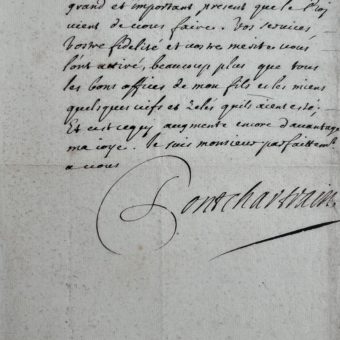 grand et important present que le Roy
vient de vous faire. Vos services,
vostre fidelité et vostre merite vous
l'ont attiré, beaucoup plus que tous
les bons offices de mon fils et les miens
quelques vifs et zelés qu'ils aient esté;
Et c'est ce qui augmente encore d'avantage
ma joye. Je suis monsieur parfaittemt
a vous
Pontchartrain